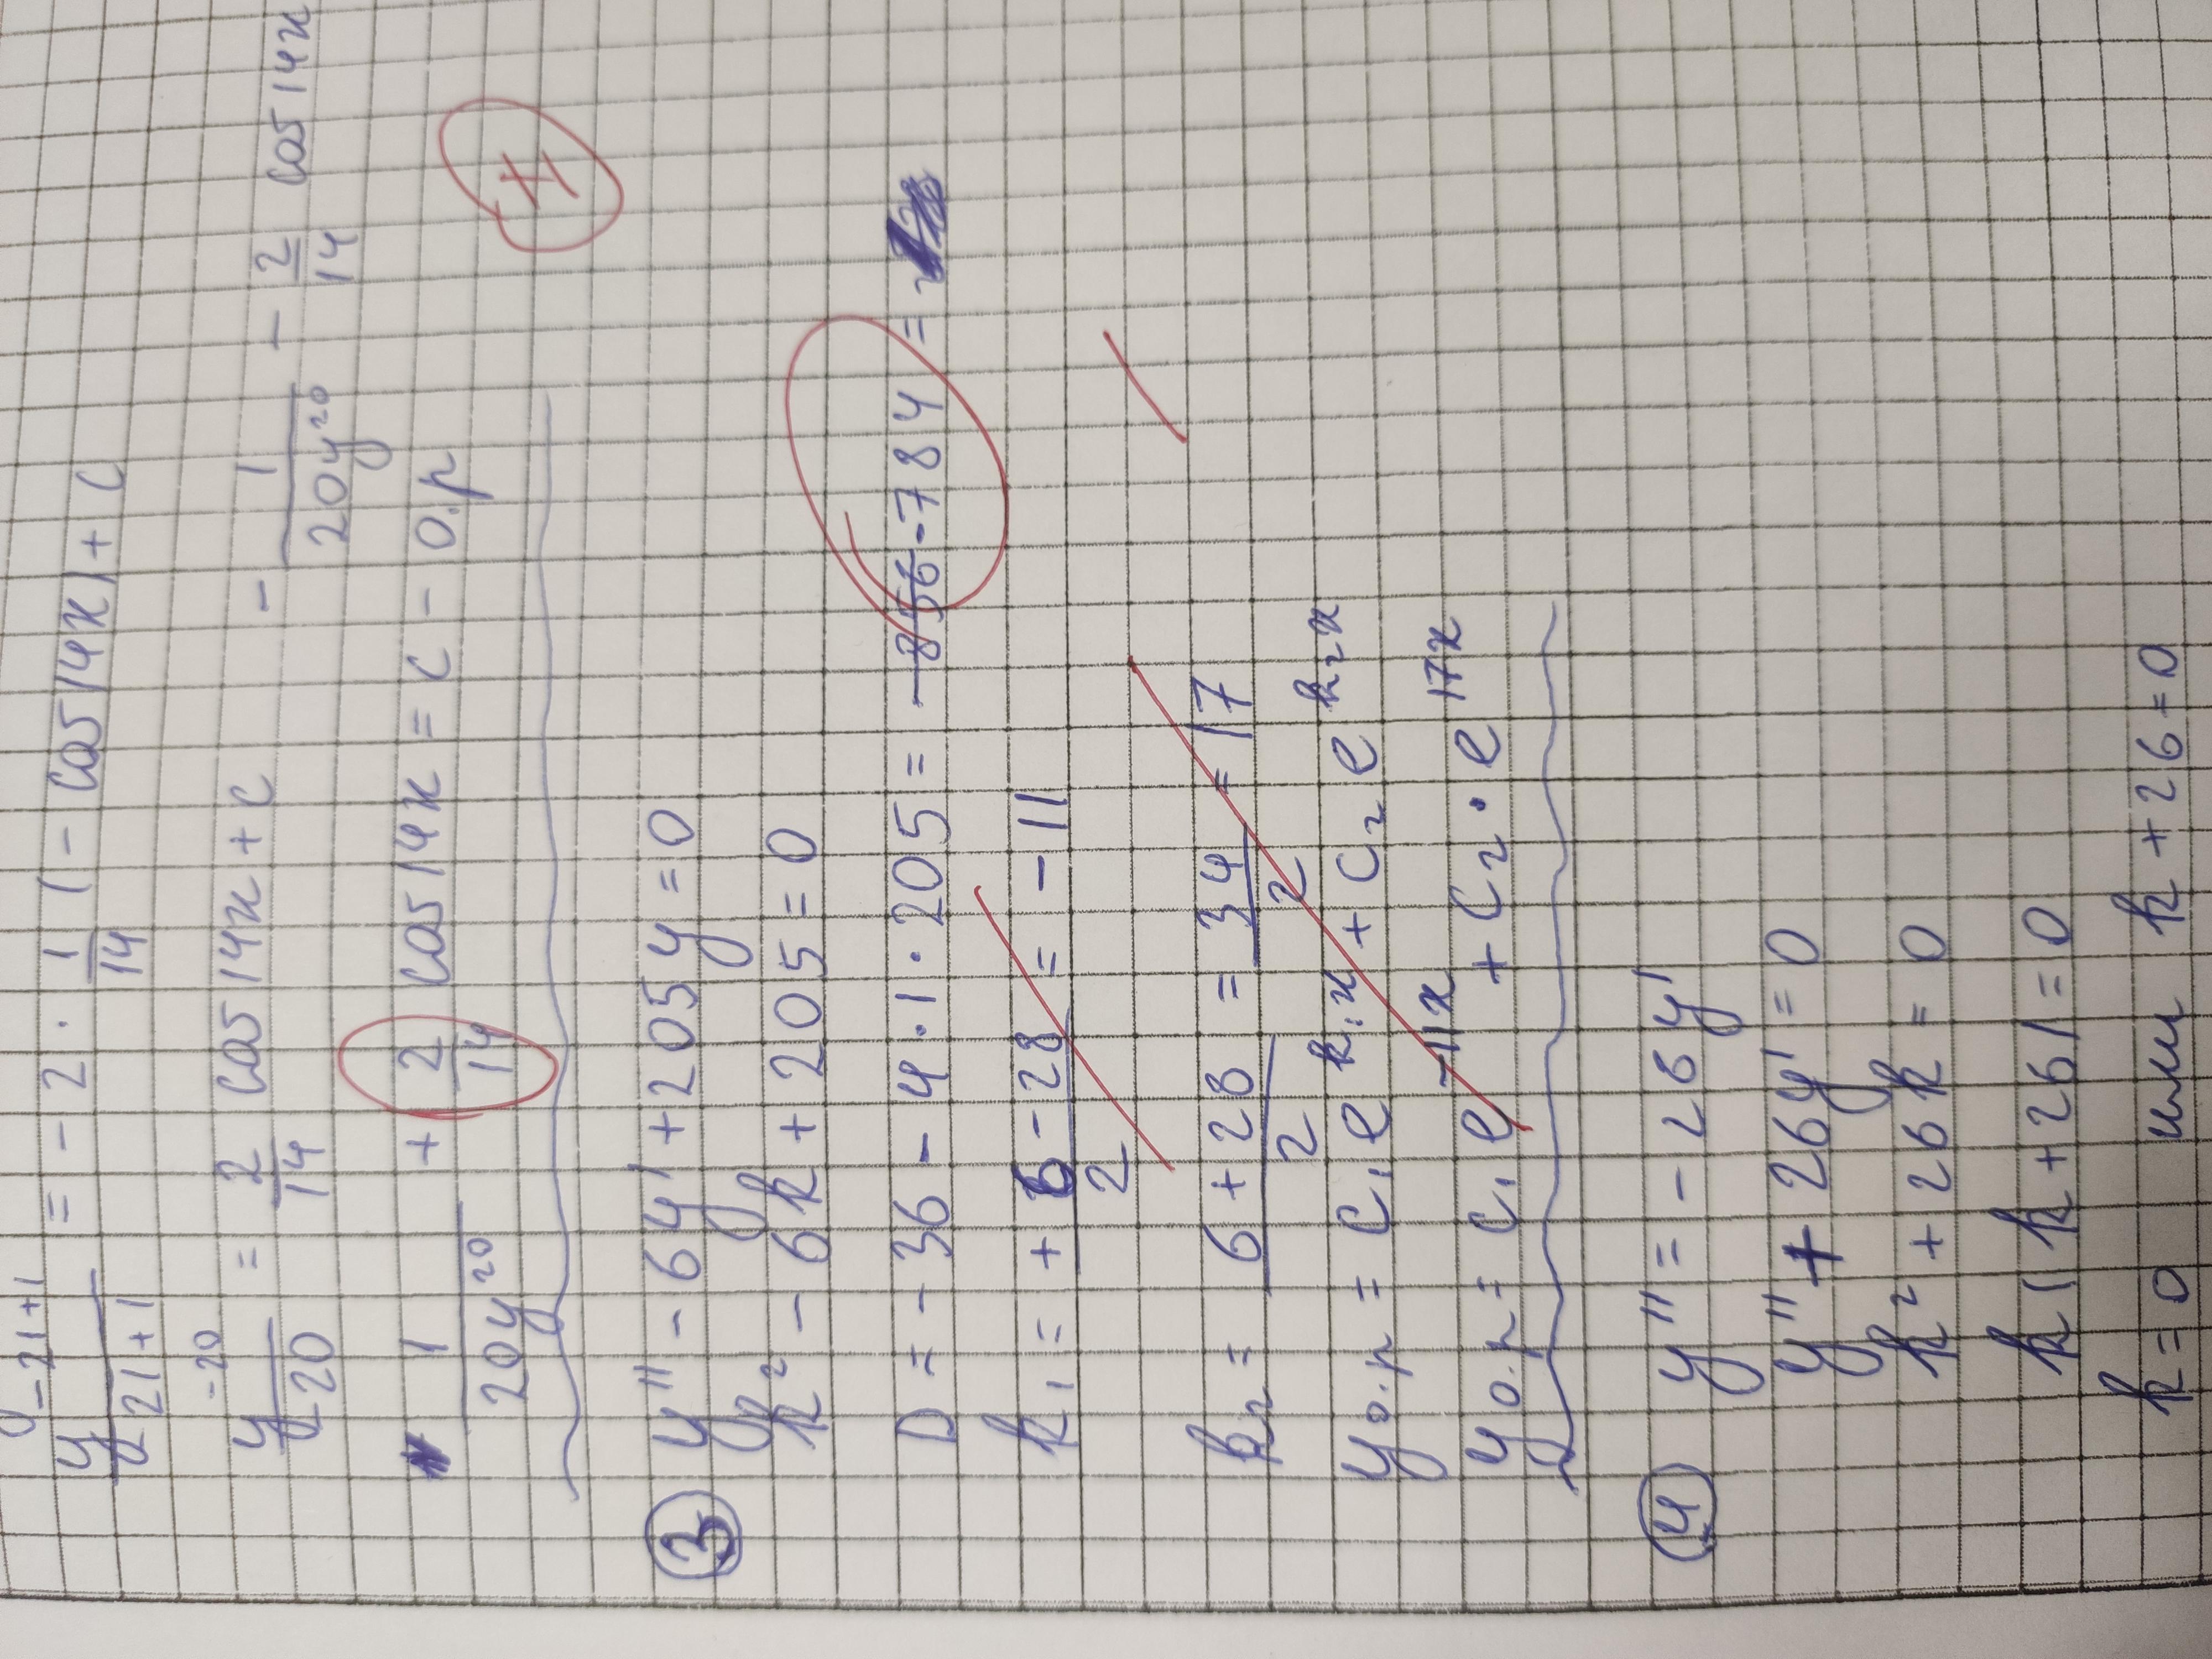 y⁻²¹⁺¹/21+1 = -2 · 1/14 (- cos 14x) + C
y⁻²⁰/-20 = 2/14 cos 14x + C - 1/20y²⁰ - 2/14 cos 14x
1/20y²⁰ + 2/14 cos 14x = C - о.р
③ y'' - 6y' + 205y = 0
k² - 6k + 205 = 0
D = - 36 - 4 · 1 · 205 = -856 -784 =
k₁ = + 6 - 28/2 = -11
k₂ = 6 + 28/2 = 34/2 = 17
yо.р = C₁e^k₁x + C₂e^k₂x
yо.р = C₁e^-11x + C₂ · e^17x
④ y'' = -26y'
y'' + 26y' = 0
k² + 26k = 0
k(k + 26) = 0
k = 0 или k + 26 = 0